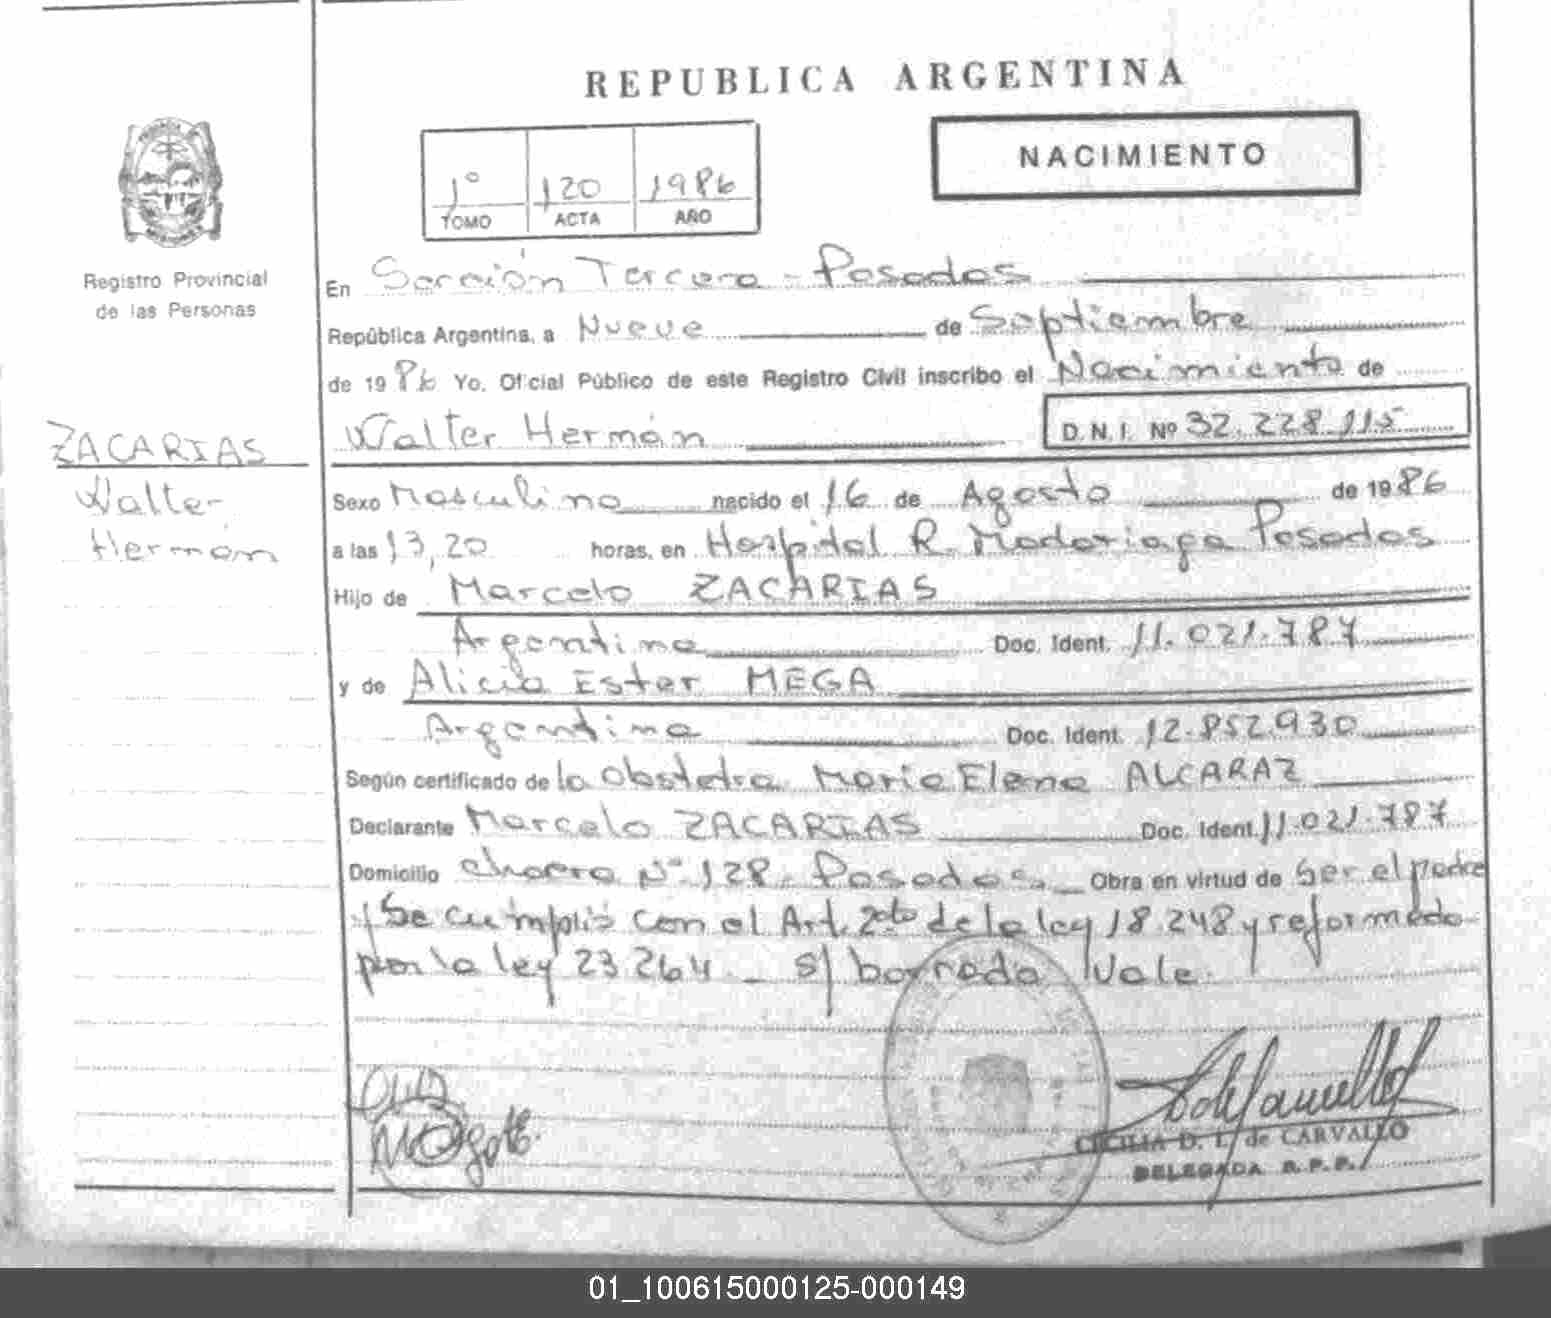 REPUBLICA ARGENTINA
NACIMIENTO
1º 120 1986
TOMO ACTA AÑO
Registro Provincial
de las Personas
ZACARIAS
Walter
Hernán
En Sección Tercera - Posadas
República Argentina, a Nueve de Septiembre
de 1986 Yo. Oficial Público de este Registro Civil inscribo el Nacimiento de
Walter Hernán D.N.I. Nº 32.228.115
Sexo Masculino nacido el 16 de Agosto de 1986
a las 13,20 horas, en Hospital R. Madariaga Posadas
Hijo de Marcelo ZACARIAS
Argentino Doc. Ident. 11.021.787
y de Alicia Ester MEGA
Argentina Doc. Ident. 12.852.930
Según certificado de la Obstetra Maria Elena ALCARAZ
Declarante Marcelo ZACARIAS Doc. Ident. 11.021.787
Domicilio Chacra Nº 128 - Posadas Obra en virtud de ser el padre
y se cumplió con el Art. 2do de la ley 18.248 y reformado
por la ley 23.264 - s/ borrado Vale
CECILIA D. L. de CARVALLO
DELEGADA R.P.P.
01_100615000125-000149